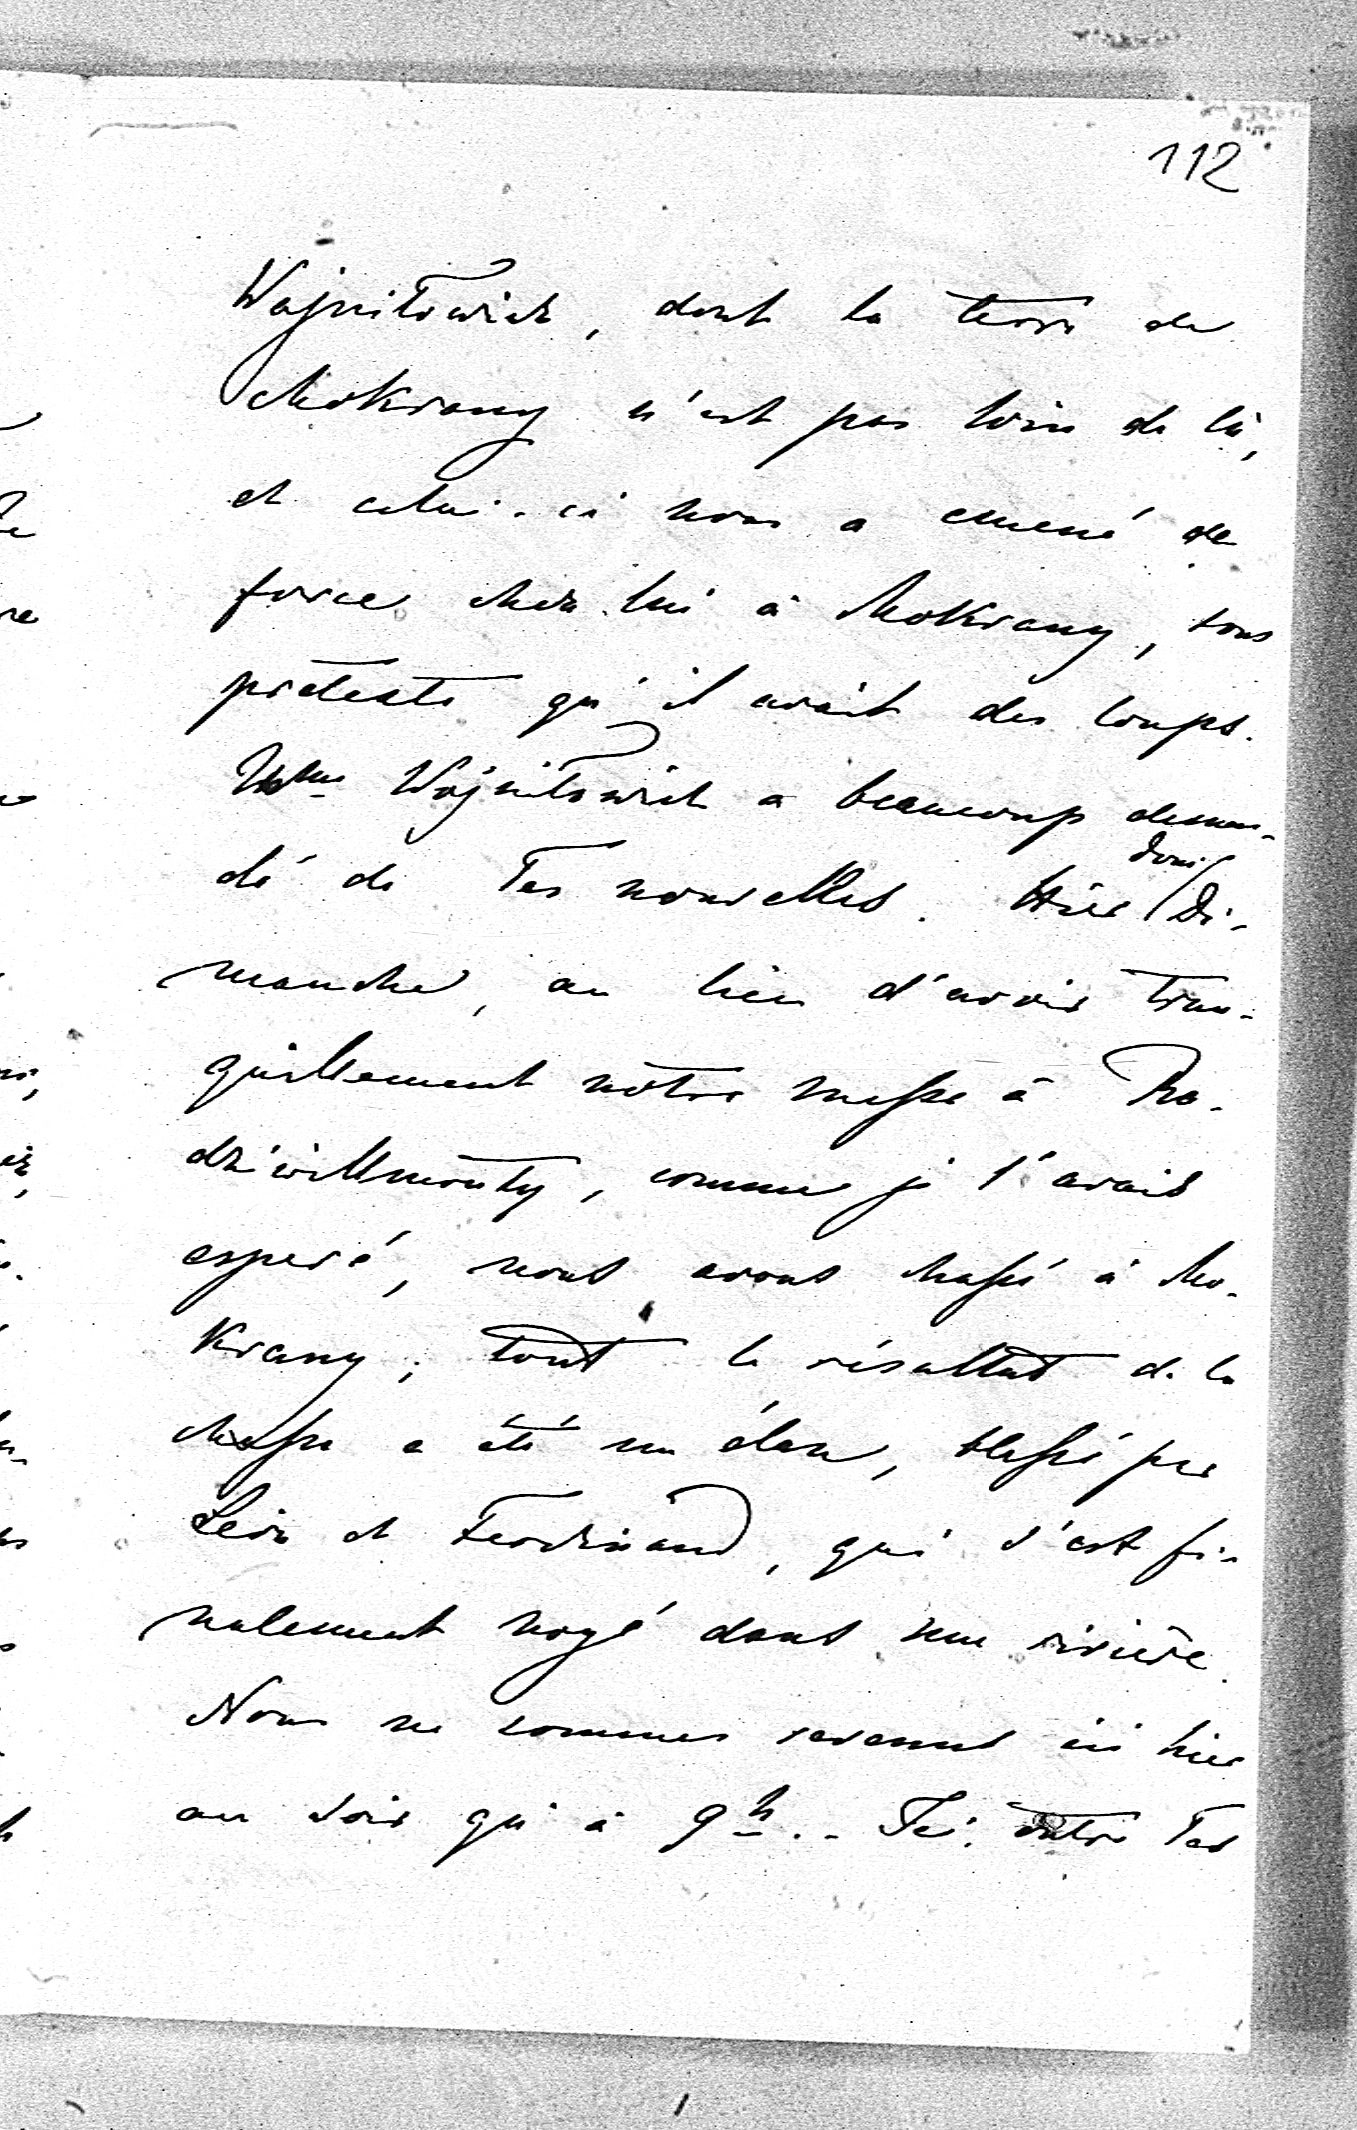 112
Wojniłowicz, dont la terre de
Mokrany n'est pas loin de là,
et celui-ci nous a emené de
force chez lui à Mokrany, sous
prétexte qu'il avait des loups.
Mme Wojniłowicz a beaucoup deman-
dé de Tes nouvelles. Hier donc Di-
manche, au lieu d'avoir tran-
quillement nôtre messe à Ra-
dziwillmonty, comme je l'avais
esperé, nous avons chassé à Mo-
krany; tout le résultat de la
chasse a été un élan, blessé par
Léon et Ferdinand, qui s'est fi-
nalement noyé dans une rivière.
Nous ne sommes revenus ici hier
au soir qu'à 9h.- Ici, outre Tes